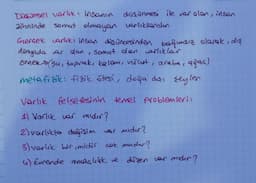 Düşünsel varlık: insanın düşünmesi ile var olan, insan
zihninde somut olmayan varlıklardır.
Gerçek varlık: insan düşüncesinden bağımsız olarak, dış
dünyada var olan, somut olan varlıklar
örnek:(su, toprak, kalem, vücut, araba, ağaç)
metafizik: fizik ötesi, doğa dışı şeyler
Varlık felsefesinin temel problemleri:
1) Varlık var mıdır?
2) varlıkta değişim var mıdır?
3) varlık bir midir çok mudur?
4) Evrende amaçlılık ve düzen var mıdır?